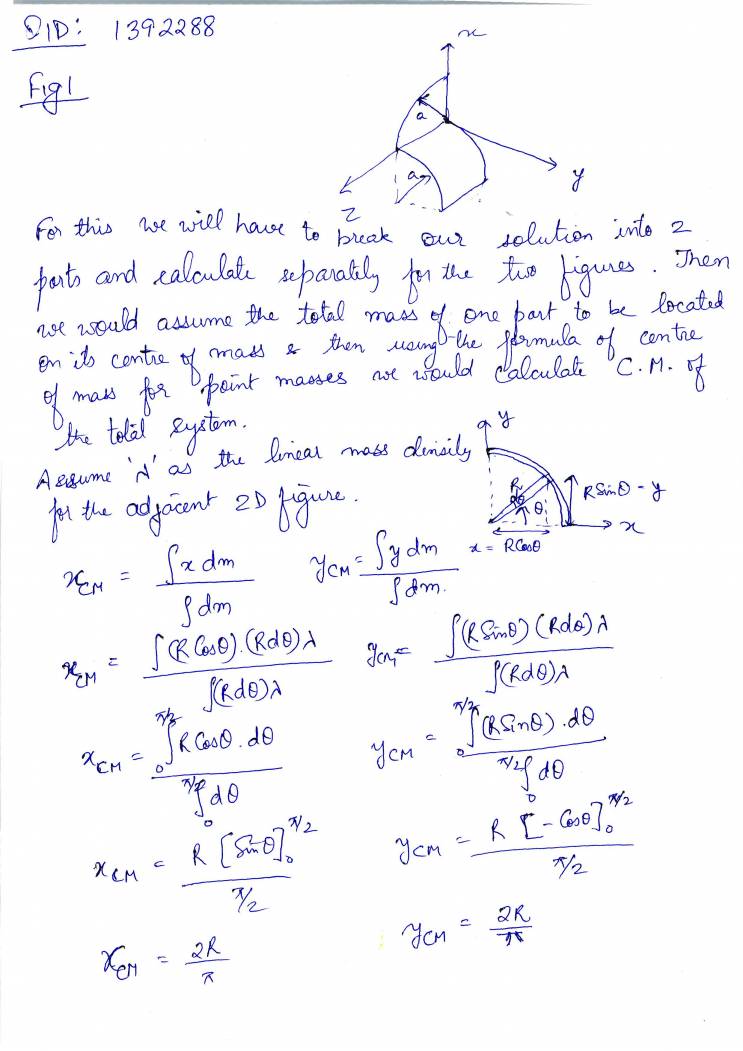 QID: 1392288
Fig 1
x
a
a
y
Z
For this we will have to break our solution into 2
parts and calculate separately for the two figures. Then
we would assume the total mass of one part to be located
on its centre of mass & then using the formula of centre
of mass for point masses we would calculate C.M. of
the total system.
Assume 'λ' as the linear mass density
for the adjacent 2D figure.
y
R
dθ
θ
RSinθ - y
x
x = RCosθ
x_CM = ∫x dm / ∫dm
y_CM = ∫y dm / ∫dm.
x_CM = ∫(R Cosθ).(Rdθ)λ / ∫(Rdθ)λ
y_CM = ∫(RSinθ)(Rdθ)λ / ∫(Rdθ)λ
x_CM = ∫₀^π/2 R Cosθ.dθ / ∫₀^π/2 dθ
y_CM = ∫₀^π/2 (RSinθ).dθ / ∫₀^π/2 dθ
x_CM = R [Sinθ]₀^π/2 / π/2
y_CM = R [-Cosθ]₀^π/2 / π/2
x_CM = 2R / π
y_CM = 2R / π